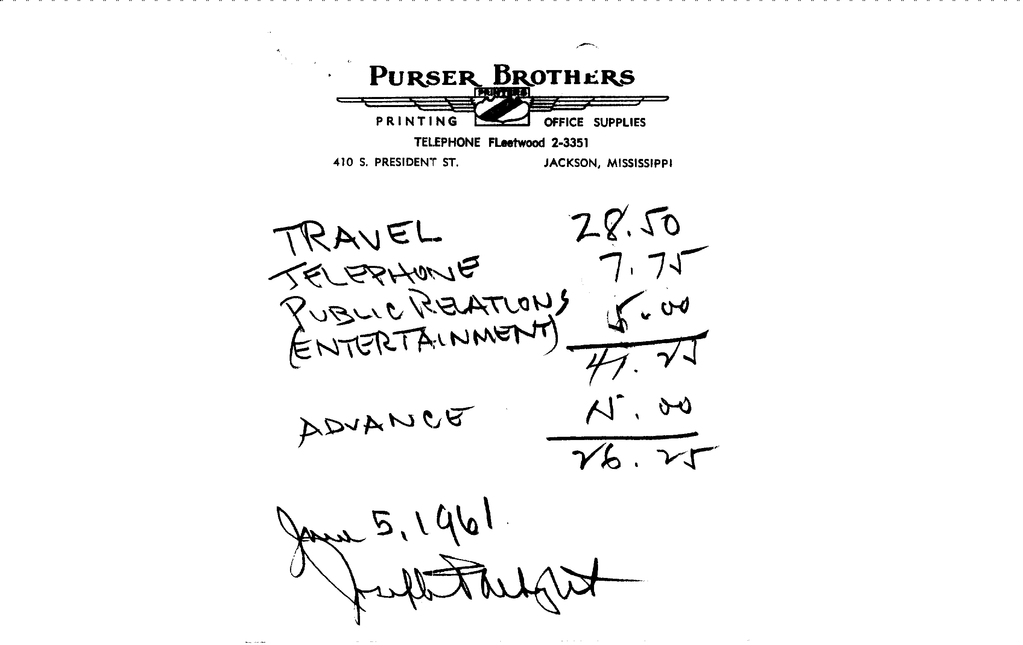 PURSER BROTHERS
PRINTERS
PRINTING OFFICE SUPPLIES
TELEPHONE FLeetwood 2-3351
410 S. PRESIDENT ST. JACKSON, MISSISSIPPI
TRAVEL 28.50
TELEPHONE 7.75
PUBLIC RELATIONS 5.00
(ENTERTAINMENT)
41.25
ADVANCE 15.00
26.25
June 5, 1961
Joseph